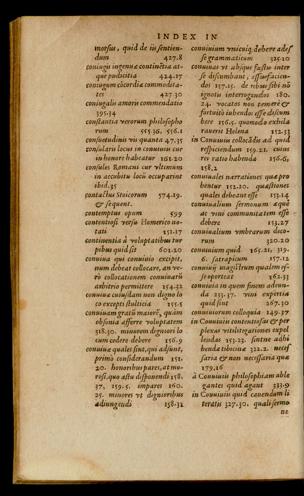 INDEX IN
morsus, quid de iis sentiendum 427.8
coniugii ingenuæ continẽtia atque pudicitia 424.17
coniugum cõcordia commoditates 427.30
coniugalis amoris commendatio 395.34
constantia verorum philosophorum 555.36. 556.1
consuetudinis vis quanta 47.35
consularis locus in conuiuiis cur in honore habeatur 162.20
consules Romani cur vltimum in accubitu locũ occuparint ibid.35
contactus Stoicorum 574.19. & sequent.
contemptus opum 599
contentiosi versus Homerico notati 151.17
continentia à voluptatibus turpibus quid sit 602.20
conuiua qui conuiuio excipit, num debeat collocare, an verò collocationem conuiuarũ arbitrio permittere 154.32
conuiua cuiusdam non digno loco excepti stultitia 155.5
conuiuam gratũ maiore, quàm obsonia afferre voluptatem 518.30. minorem degniori locum cedere debere 156.9
conuiuæ quales sint, qui adsunt, primò considerandum 151. 20. honoribus pares, at morosi, quo actu disponendi 158. 37. 159.5. impares 160. 25. minores vt dignioribus adiungendi 158.32
conuiuium vnicuiq, debere adesse grammaticum 325.20
conuiuas vt absque fastu inter se discumbant, efficiẽdum faciendos 157.15. de rebus sibi nõ ignotis interrogandos 180. 24. vocatos non temerè & fortuitò inbendos esse discumbere 156.5. quomodo exhilarauerit Helena 152.33
in Conuiuio collocãdis ad quid respiciendum 159.22. cuius rei ratio habenda 156.6. 158.2
conuiuales narrationes quæ probentur 152.20. quæstiones quales debeant esse 153.14
conuiualium sermonum æquè ac vini communitatem esse debere 153.27
conuiualium vmbrarum decorum 320.20
conuiuium quid 165.21. 319. 6. satrapicum 157.12
conuiuij magistrum qualem esse oporteat 162.33
conuiuia in quem finem adeunda 233.37. vini expertia quid sint 267.30
conuiuiorum colloquia 149.37
in Conuiuiis contentiosas & perplexas vtilitigationes expellendas 153.23. sintne adhibendæ tibicinæ 322.2. necessaria & non necessaria quæ 179.16
à Conuiuiis philosophiam ablegantes quid agant 333.9
in Conuiuiis quid canendum literatis 327.30. quali sermo
ne